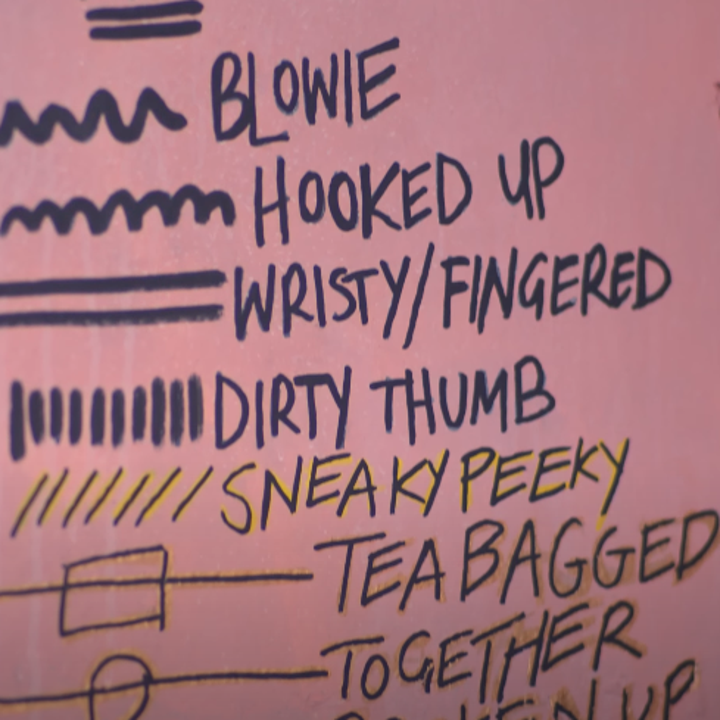 BLOWIE
HOOKED UP
WRISTY/FINGERED
DIRTY THUMB
SNEAKY PEEKY
TEA BAGGED
TOGETHER
UP